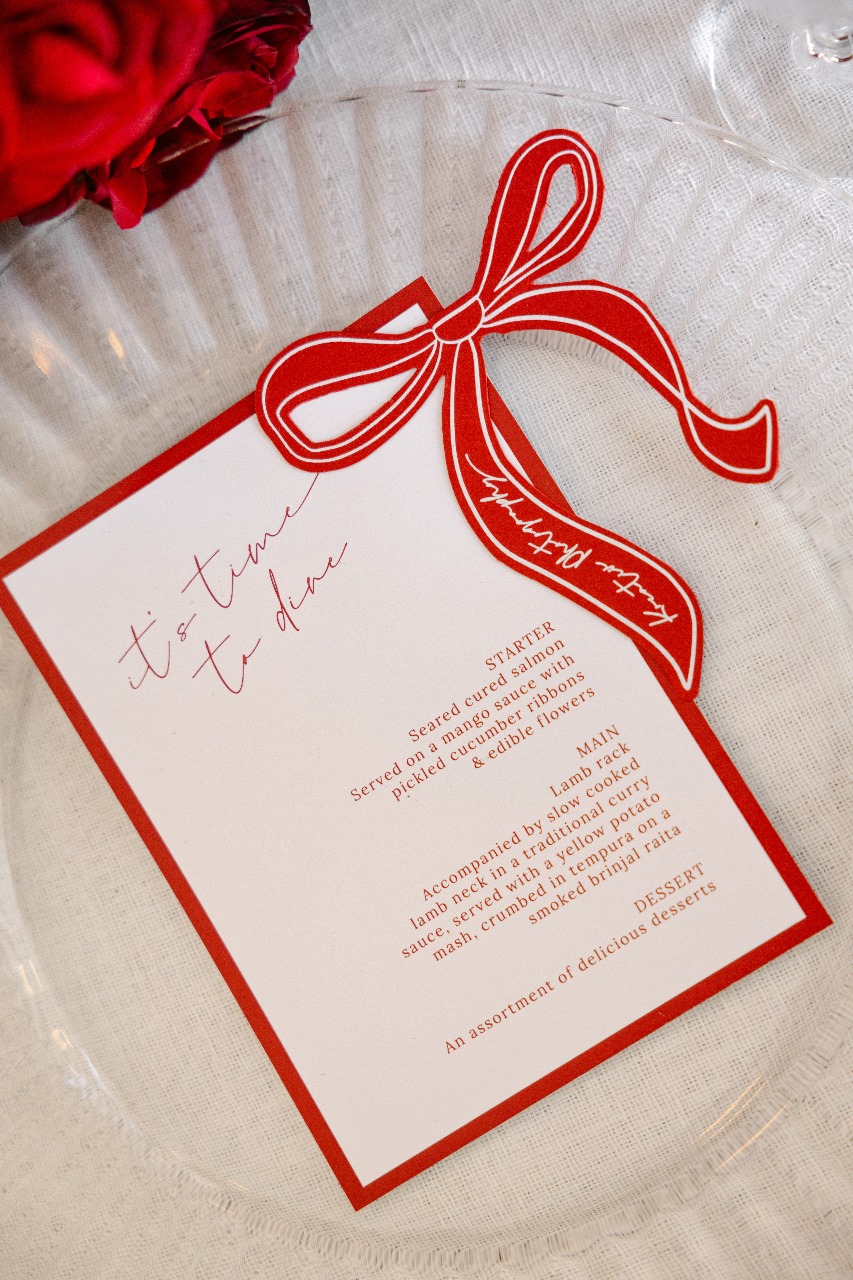 it's time
to dine
Kreativ Photography
STARTER
Seared cured salmon
Served on a mango sauce with
pickled cucumber ribbons
& edible flowers
MAIN
Lamb rack
Accompanied by slow cooked
lamb neck in a traditional curry
sauce, served with a yellow potato
mash, crumbed in tempura on a
smoked brinjal raita
DESSERT
An assortment of delicious desserts